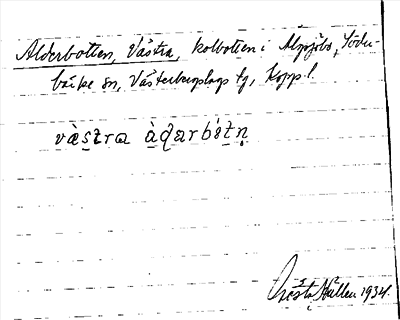 Alderbotten, Västra, kolbotten i Alpsjöbo, Söder-
bärke sn, Västerbergslags tg, Kopp. l.
və̀stra àdarbòtn̥
Gösta Hållen 1934.